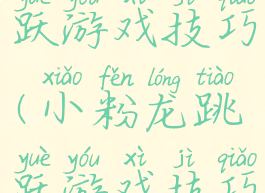 yuè yóu xì jì qiǎo
跃游戏技巧
xiǎo fěn lóng tiào
(小粉龙跳
yuè yóu xì jì qiǎo
跃游戏技巧